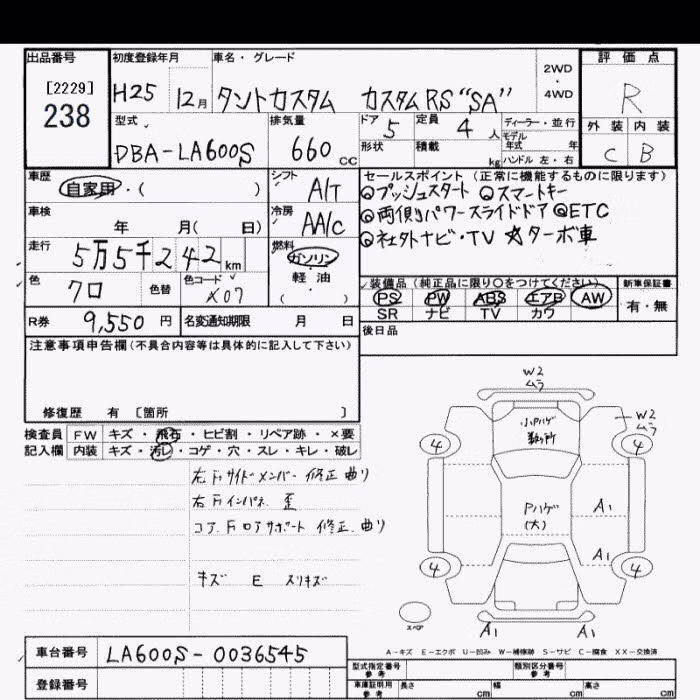 出品番号 初度登録年月 車名・グレード 評価点
[2229] 238 H25 12月 タントカスタム カスタムRS "SA" 2WD・4WD R
型式 排気量 ドア 定員 ディーラー・並行 外装 内装
DBA-LA600S 660cc 5 4人 モデル年式 年 C B
形状 積載 kg ハンドル 左・右
車歴 シフト セールスポイント(正常に機能するものに限ります)
自家用・( ) A/T ◎プッシュスタート ◎スマートキー
車検 冷房 ◎両側パワースライドドア ◎ETC
年 月(日) AA/C ◎社外ナビ・TV ☆ターボ車
走行 燃料
5万5千242km ガソリン
色 色替 色コード 軽油 装備品(純正品に限り○をつけてください) 新車保証書
クロ X07 ( ) PS PW ABS エアB AW 有・無
SR ナビ TV カワ
R券 9,550円 名変通知期限 月 日 後日品
注意事項申告欄(不具合内容等は具体的に記入して下さい)
修復歴 有 [箇所 ]
検査員 FW キズ・飛石・ヒビ割・リペア跡・×要
記入欄 内装 キズ・汚レ・コゲ・穴・スレ・キレ・破レ
左Fサイドメンバー 修正 曲り
右Fインパネ 歪
コアFロアサポート 修正 曲り
キズ E スリキズ
W2
ムラ
小Pハゲ
W2
ムラ
4 4
Pハゲ
(大)
A1
A1
4 4
スペア
A1 A1
A-キズ E-エクボ U-凹み W-補修跡 S-サビ C-腐食 XX-交換済
車台番号 LA600S-0036545
登録番号
型式指定番号 参考 類別区分番号 参考
車庫証明用 参考 長さ cm 幅 cm 高さ cm